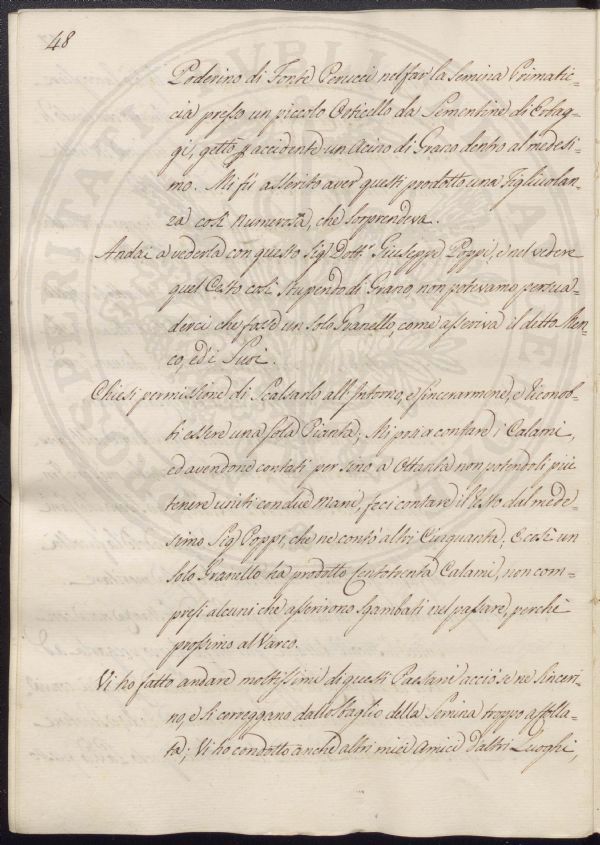 48
Poderino di Fonte Perucci nel far la Semina Primatic-
cia presso un piccolo Orticello da Sementine di Ortag-
gi, gettò p accidente un Acino di Grano dentro al medesi-
mo. Mi fù asserito aver questi prodotto una Figliuolan-
za così numerosa, che sorprendeva.
Andai a vederla con questo Sig.r Dott.r Giuseppe Poppi, e nel vedere
quel Cesto così stupendo di Grano, non potevamo persua-
derci che fosse un solo Granello, come asseriva il detto Men-
co, ed i Suoi.
Chiesi permissione di Scalsarlo all'Intorno, e sincerarmene, e riconob-
bi essere una sola Pianta; Mi posi a contare i Calami,
ed avendone contati per sino a Ottanta non potendoli più
tenere uniti con due Mani, feci contare il resto dal mede-
simo Sig.r Poppi, che ne contò altri Cinquanta; E così un
solo Granello ha prodotto Centotrenta Calami, non com-
presi alcuni che asserirono sgambati nel passare, perchè
prossimo al Varco.
Vi ho fatto andare moltissimi di questi Paesani acciò se ne sinceri-
no, e si correggano dallo sbaglio della Semina troppo affolla-
ta; Vi ho condotto anche altri miei Amici d'altri Luoghi,
PROSPERITATI PUBLICAE